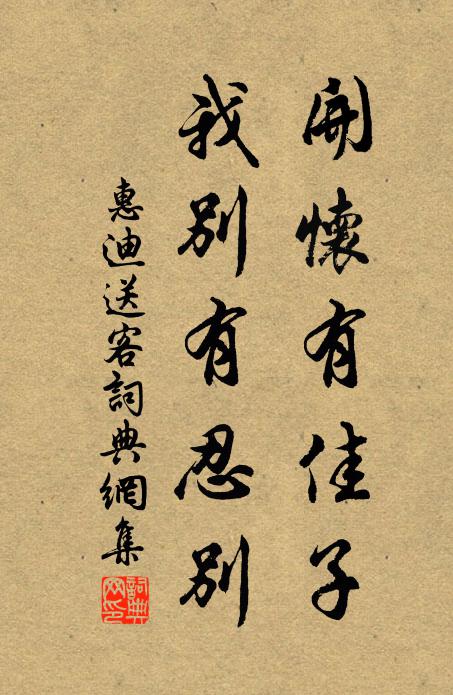 開懷有佳子
我別有忍別
惠迪送客詞典網集
詞典网印